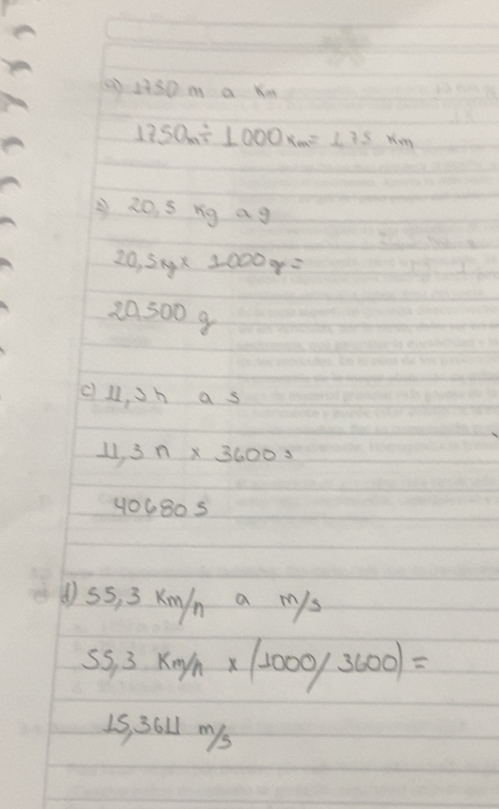 a) 1750 m a Km
1750m ÷ 1000 Km = 1,75 Km
b) 20,5 Kg a g
20,5Kg x 1000 g =
20500 g
c) 11,3h a s
11,3 h x 3600 s
40680 s
d) 55,3 Km/h a m/s
55,3 Km/h x (1000/3600) =
15,3611 m/s